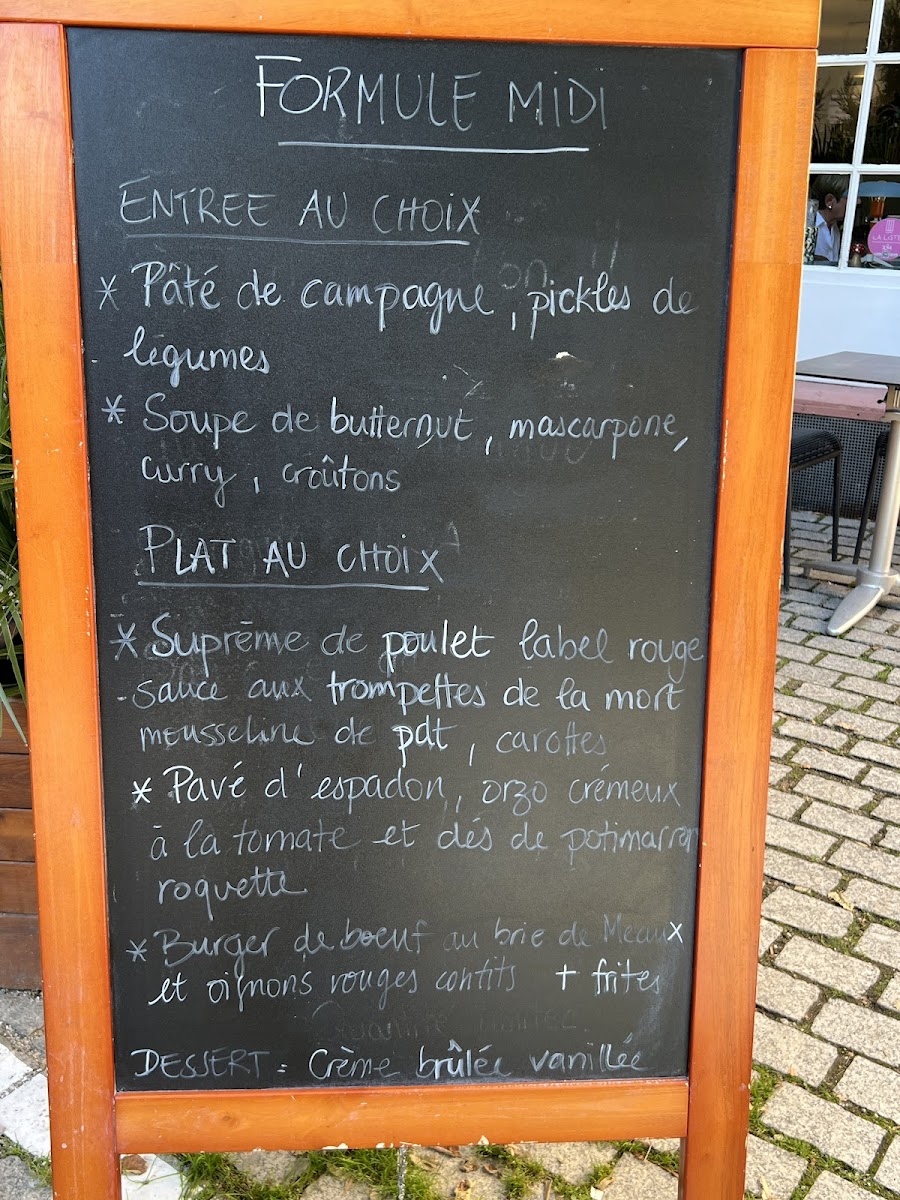 FORMULE MIDI
ENTREE AU CHOIX
* Pâté de campagne, pickles de
légumes
* Soupe de butternut, mascarpone,
curry, croûtons
PLAT AU CHOIX
* Suprême de poulet label rouge
sauce aux trompettes de la mort
mousseline de pdt, carottes
* Pavé d'espadon, orzo crémeux
à la tomate et dés de potimarron
roquette
* Burger de boeuf au brie de Meaux
et oignons rouges confits + frites
DESSERT : Crème brûlée vanillée
LA LISTE